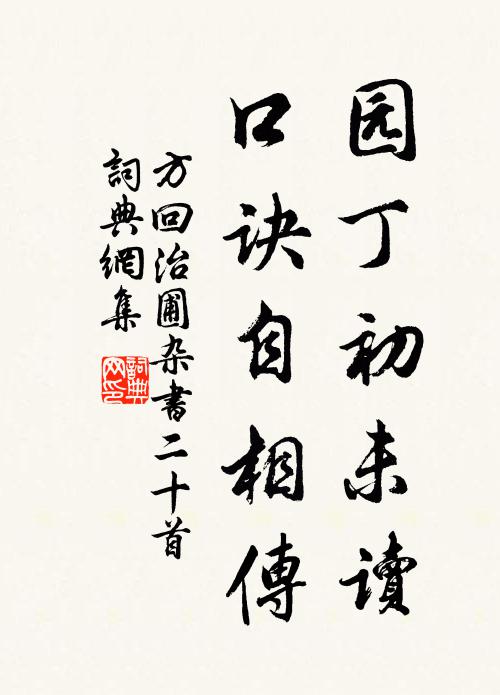 园丁初未讀
口訣自相傳
方回治圃杂書二十首
詞典網集
詞典网印